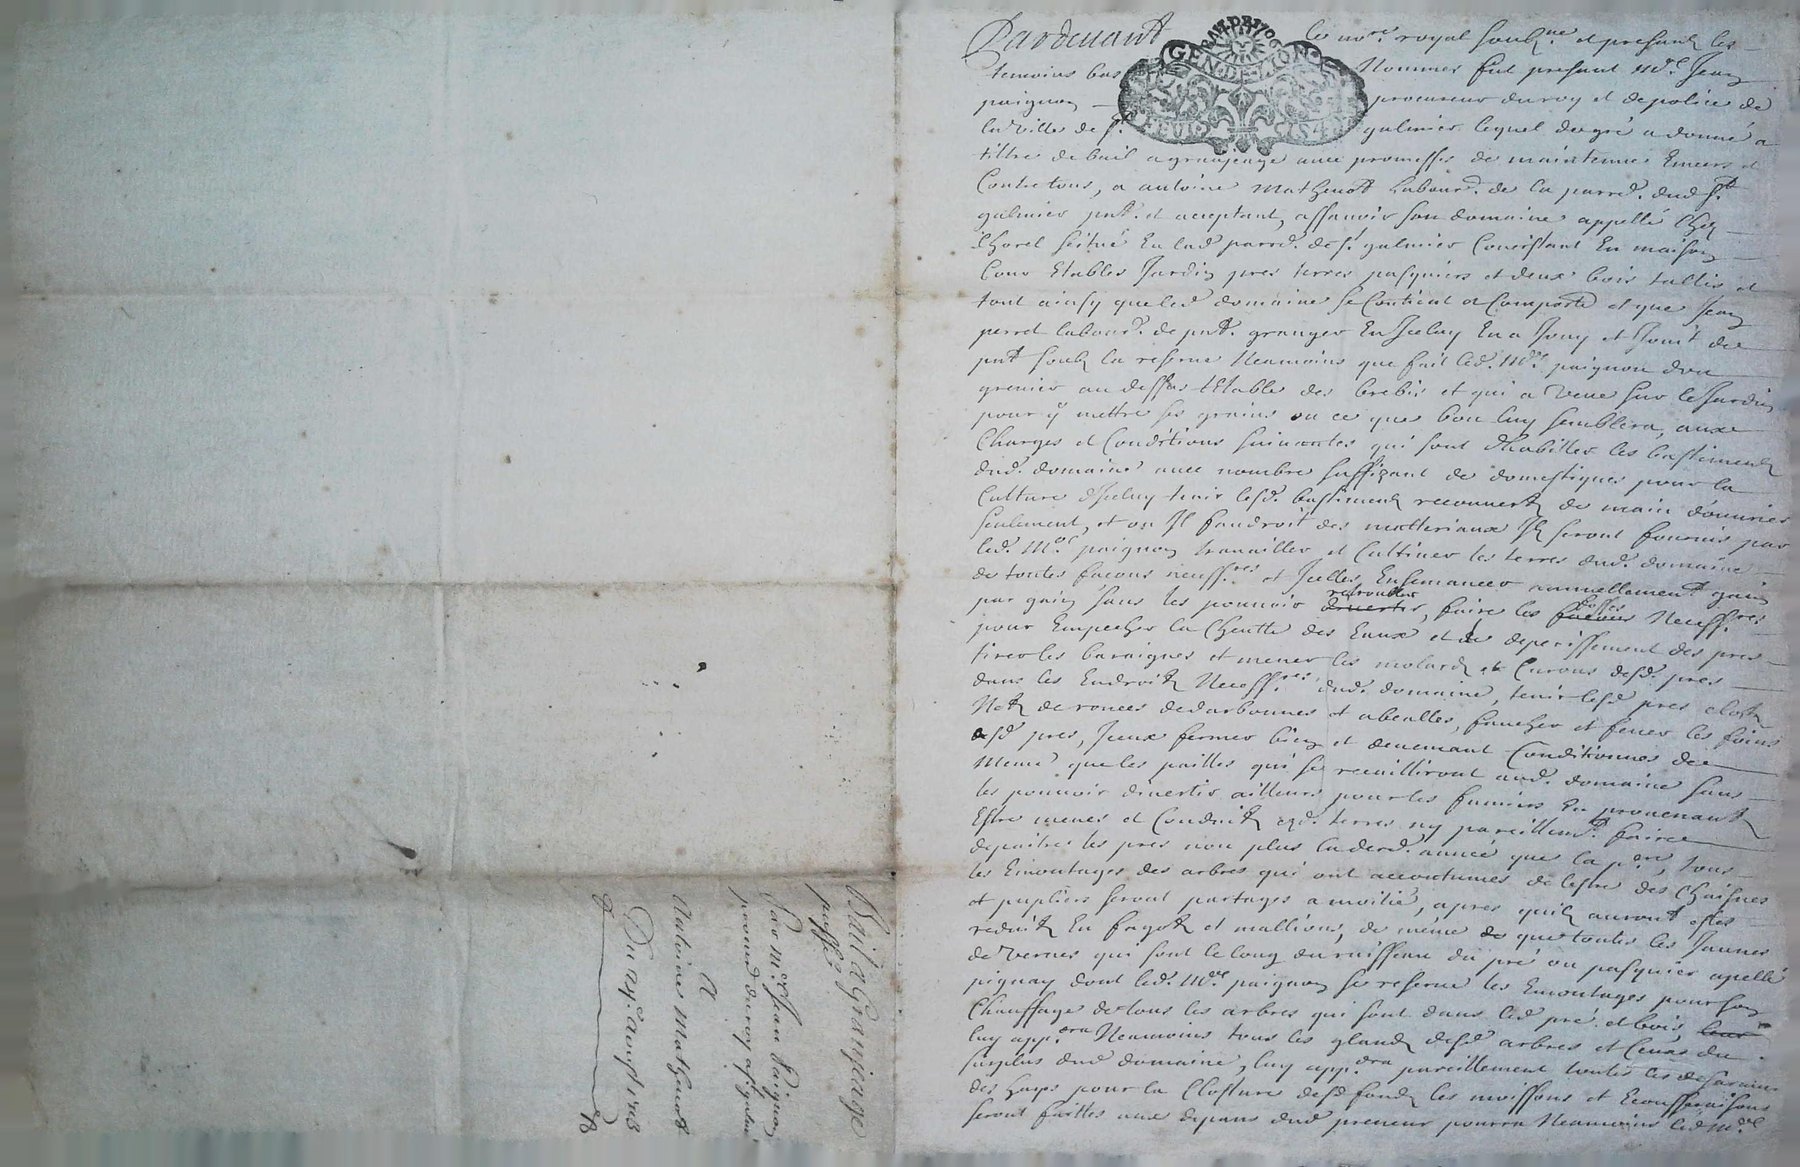 Pardevant le no.re royal soubz.né et presentz les
temoins bas nommes fut present M.e Jean
paignon procureur du roy et de police de
la ville de s.t galmier lequel de gré a donné a
tiltre de bail a grangeage avec promesse de maintenue Envers et
Contre tous, a antoine Mathevot labour.r de la parr.e dud s.t
galmier pnt. et acceptant, assavoir son domaine appellé Chez
thorel scitué En lad parr.e de s.t galmier Consistant En maison
Cour Etables Jardin pres terres pasquiers et deux bois taillis et
tout ainsy que led domaine se Contient et Comporte et que Jean
perret labour.r de pnt. granger En Jceluy En a Jouy et Jouit de
pnt soubz la reserve Neamoins que fait led. M.e paignon d'un
grenier au dessus l'Etable des brebis et qui a veue sur le Jardin
pour y mettre ses grains ou ce que bon luy semblera, aux
Charges et Conditions suivantes qui sont d'habiller les bastimentz
dud. domaine avec nombre suffizant de domestiques pour la
Culture d'Jceluy tenir lesd. bastimentz recouvertz de main d'ouvrier
seulement, et ou Jl faudroit des matteriaux Jlz seront fournis par
led. M.e paignon travailler et Cultiver les terres dud. domaine
de toutes facons necess.res et Jcelles Ensemancer annuellement gain
par gain sans les pouvoir retroubler, faire les fosses Necess.res
pour Empecher la Cheutte des Eaux et le deperissement des pres
tirer les baraignes et mener les molardz et Curons desd. pres
dans les Endroitz Necess.res dud. domaine, tenir lesd pres closts
Netz de ronces de darbonnes et abealles, faucher et fener les foins
desd pres, Jceux fermer bien et deuemant Conditionnes de
meme que les pailles qui se recuilliront aud. domaine sans
les pouvoir divertir ailleurs pour les fumiers En provenantz
Estre menes et Conduitz ezd. terres ny pareillem.t faire
depaitre les pres non plus la der.e année que la p.ere, tous
les Emontages des arbres qui ont accoutumes de l'estre des Chaisnes
et pupliers seront partages a moitié, apres quilz auront estes
reduitz En fagotz et mallions, de même que toutes les Jaunes
de vernes qui sont le long du ruisseau du pré ou pasquier apellé
pignay dont led. M.e paignon se reserve les Emontages pour son
Chauffage de tous les arbres qui sont dans led pré et bois
luy app.dra Neamoins tous les glandz desd arbres et Ceux du
surplus dud domaine, luy app.dra pareillement toutes les
des hayes pour la Closture desd fondz les moissons et Ecoussaisons
seront faittes aux depans dud preneur pourra Neamoins led M.e
GEN.DE.LION
Bail a Grangeage
passé
Par M.e Jean Paignon
procur.r du roy a s.t galmier
A
Antoine Mathevot